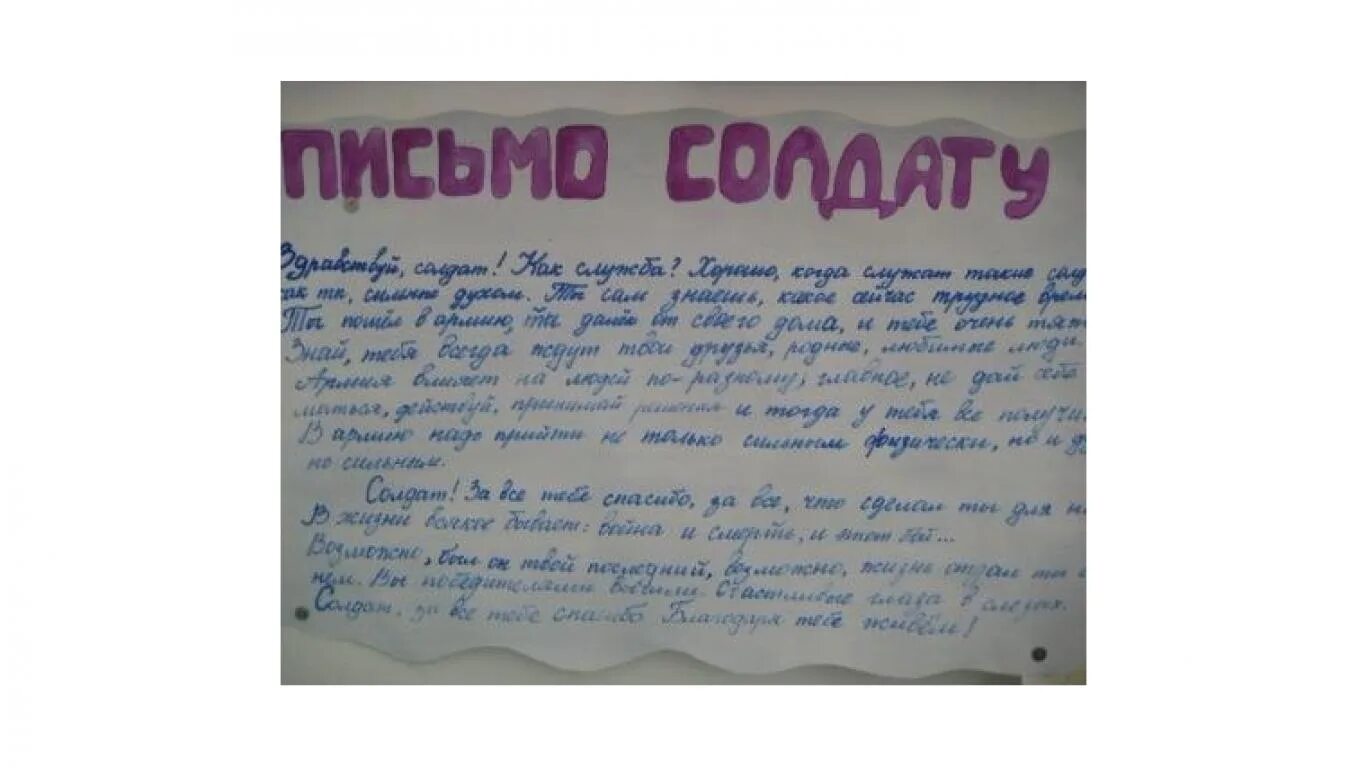 ПИСЬМО СОЛДАТУ
Здравствуй, солдат! Как служба? Хорошо, когда служат такие солд
ак ты, сильные духом. Ты сам знаешь, какое сейчас трудное врем
Ты пошёл в армию, ты далек от своего дома, и тебе очень тя
Знай, тебя всегда ждут твои друзья, родные, любимые люди.
Армия влияет на людей по-разному, главное, не дай себе
маться, действуй, принимай решения и тогда у тебя все получи
В армию надо прийти не только сильным физически, но и ду
но сильным.
Солдат! За все тебе спасибо, за все, что сделал ты для н
В жизни всякое бывает: война и смерть, и этот бой...
Возможно, был он твой последний, возможно, жизнь отдал ты
нем. Вы победителями были. Счастливые глаза в слезах.
Солдат, за все тебе спасибо Благодаря тебе живём!